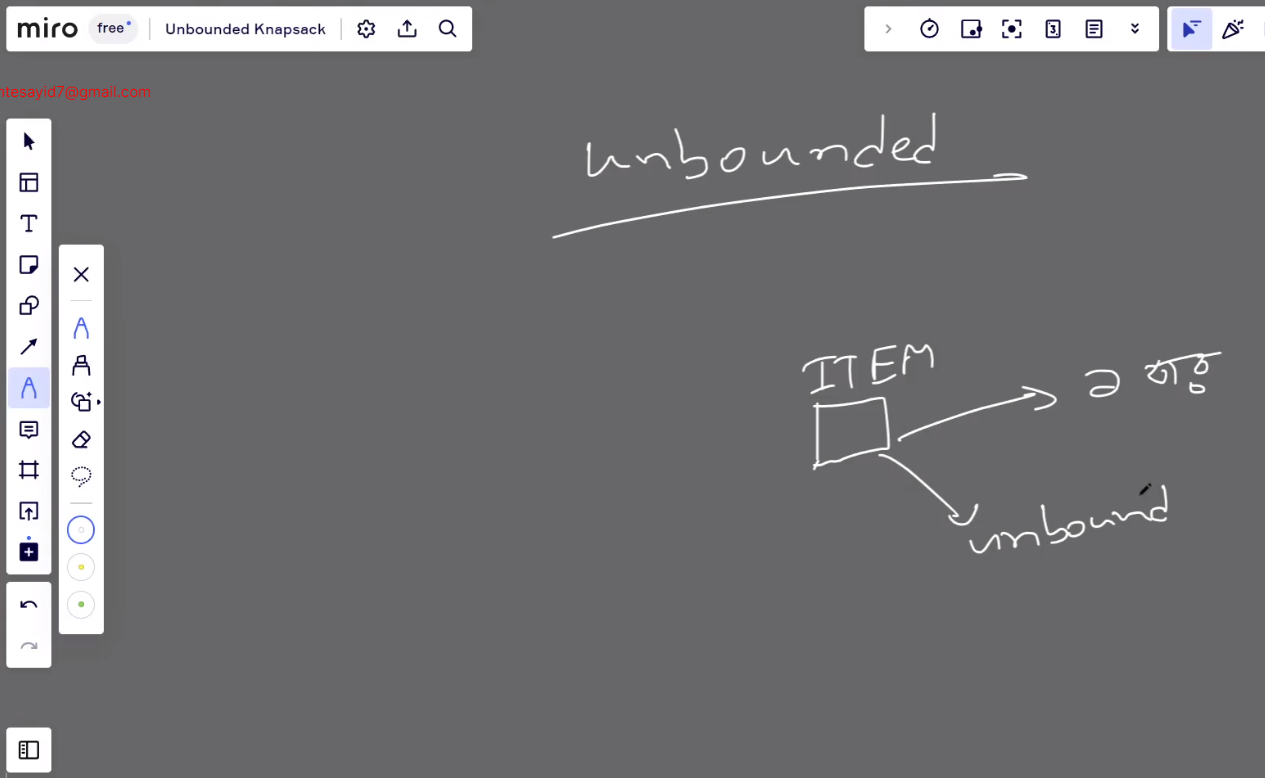 miro free Unbounded Knapsack
ntesayid7@gmail.com
unbounded
ITEM
unbound